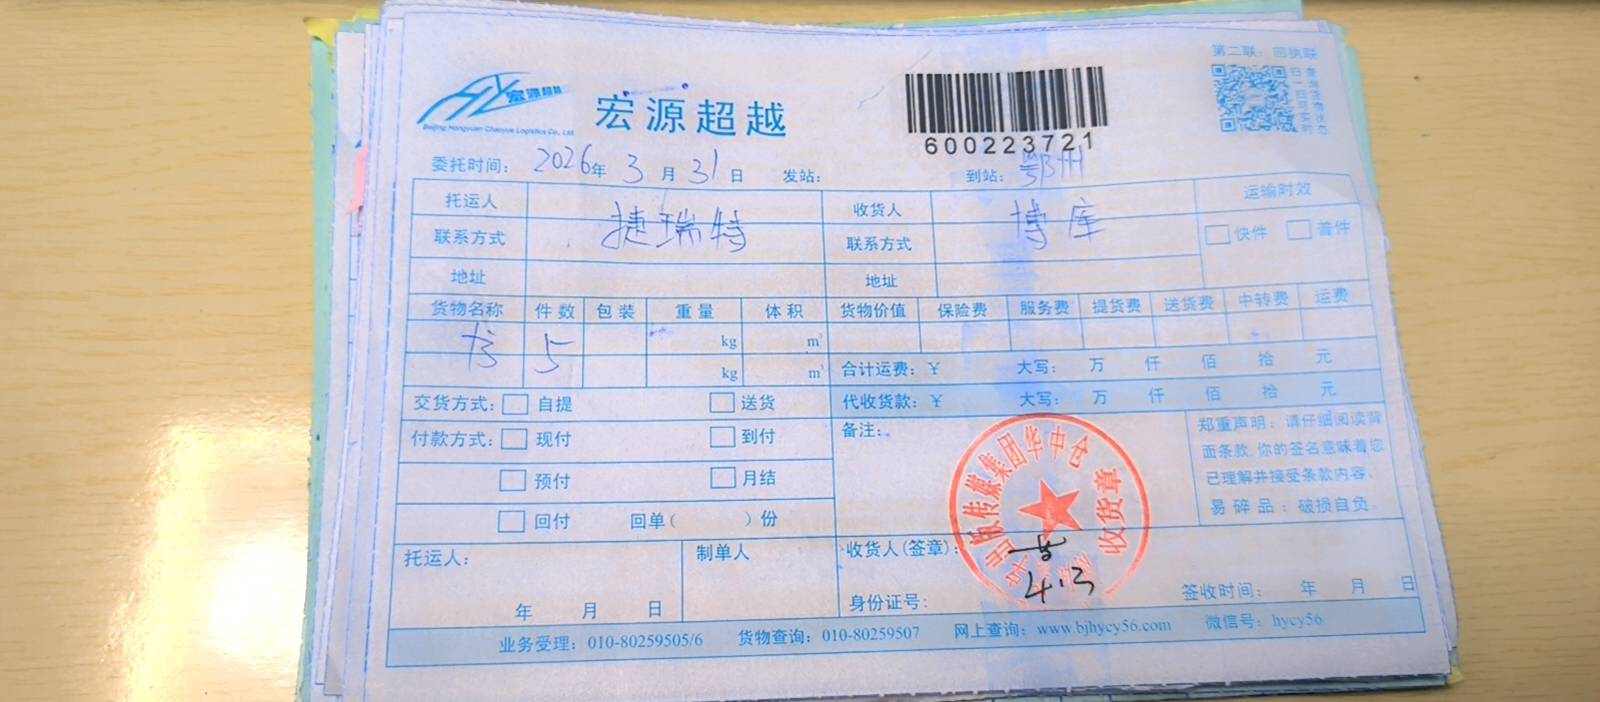 第二联：回执联
宏源超越
Beijing Hongyuan Chaoyue Logistics Co., Ltd.
宏源超越
600223721
扫一扫查货物实时状态
委托时间：2026年3月31日 发站： 到站：鄂州
托运人 捷瑞特 收货人 博库 运输时效
联系方式 联系方式 快件 普件
地址 地址
货物名称 件数 包装 重量 体积 货物价值 保险费 服务费 提货费 送货费 中转费 运费
书 5 kg m³
kg m³ 合计运费：¥ 大写： 万 仟 佰 拾 元
交货方式： 自提 送货 代收货款：¥ 大写： 万 仟 佰 拾 元
付款方式： 现付 到付 备注：
预付 月结
回付 回单（ ）份
郑重声明：请仔细阅读背
面条款，你的签名意味着您
已理解并接受条款内容、
易碎品：破损自负。
传媒集团华中仓
收货章
托运人： 制单人 收货人(签章)：
4.13
年 月 日 身份证号： 签收时间： 年 月 日
业务受理：010-80259505/6 货物查询：010-80259507 网上查询：www.bjhycy56.com 微信号：hycy56